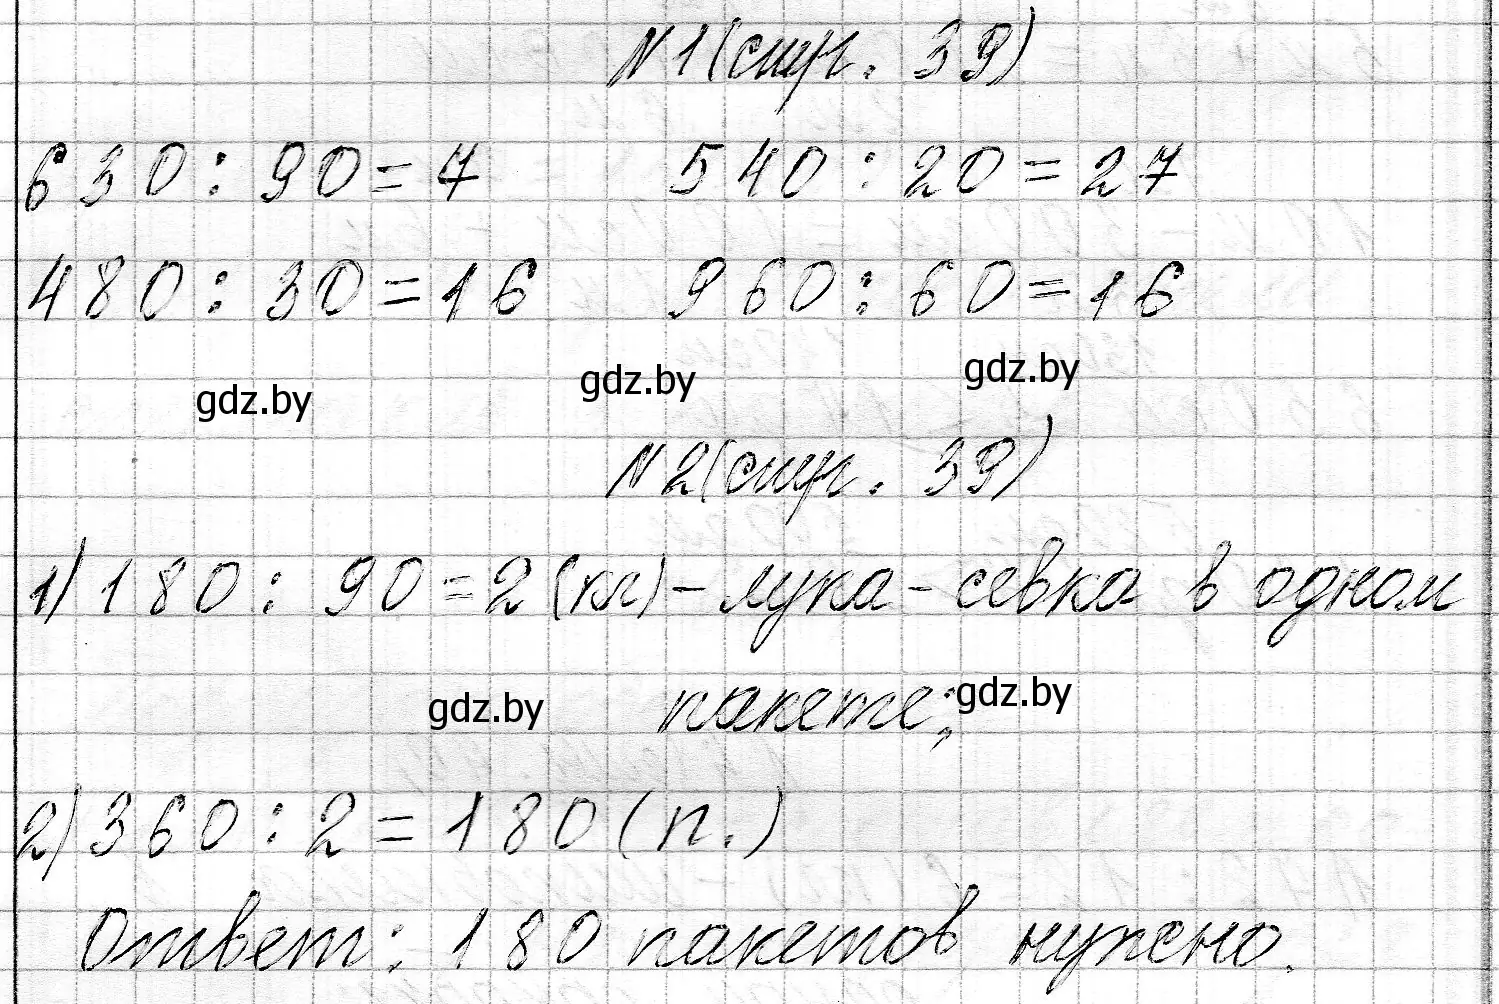 №1(стр. 39)
630:90=7 540:20=27
480:30=16 960:60=16
gdz.by gdz.by gdz.by
№2(стр. 39)
1) 180:90=2(кг)-лука-севка в одном
пакете;
gdz.by gdz.by
2) 360:2=180(п.)
Ответ: 180 пакетов нужно.